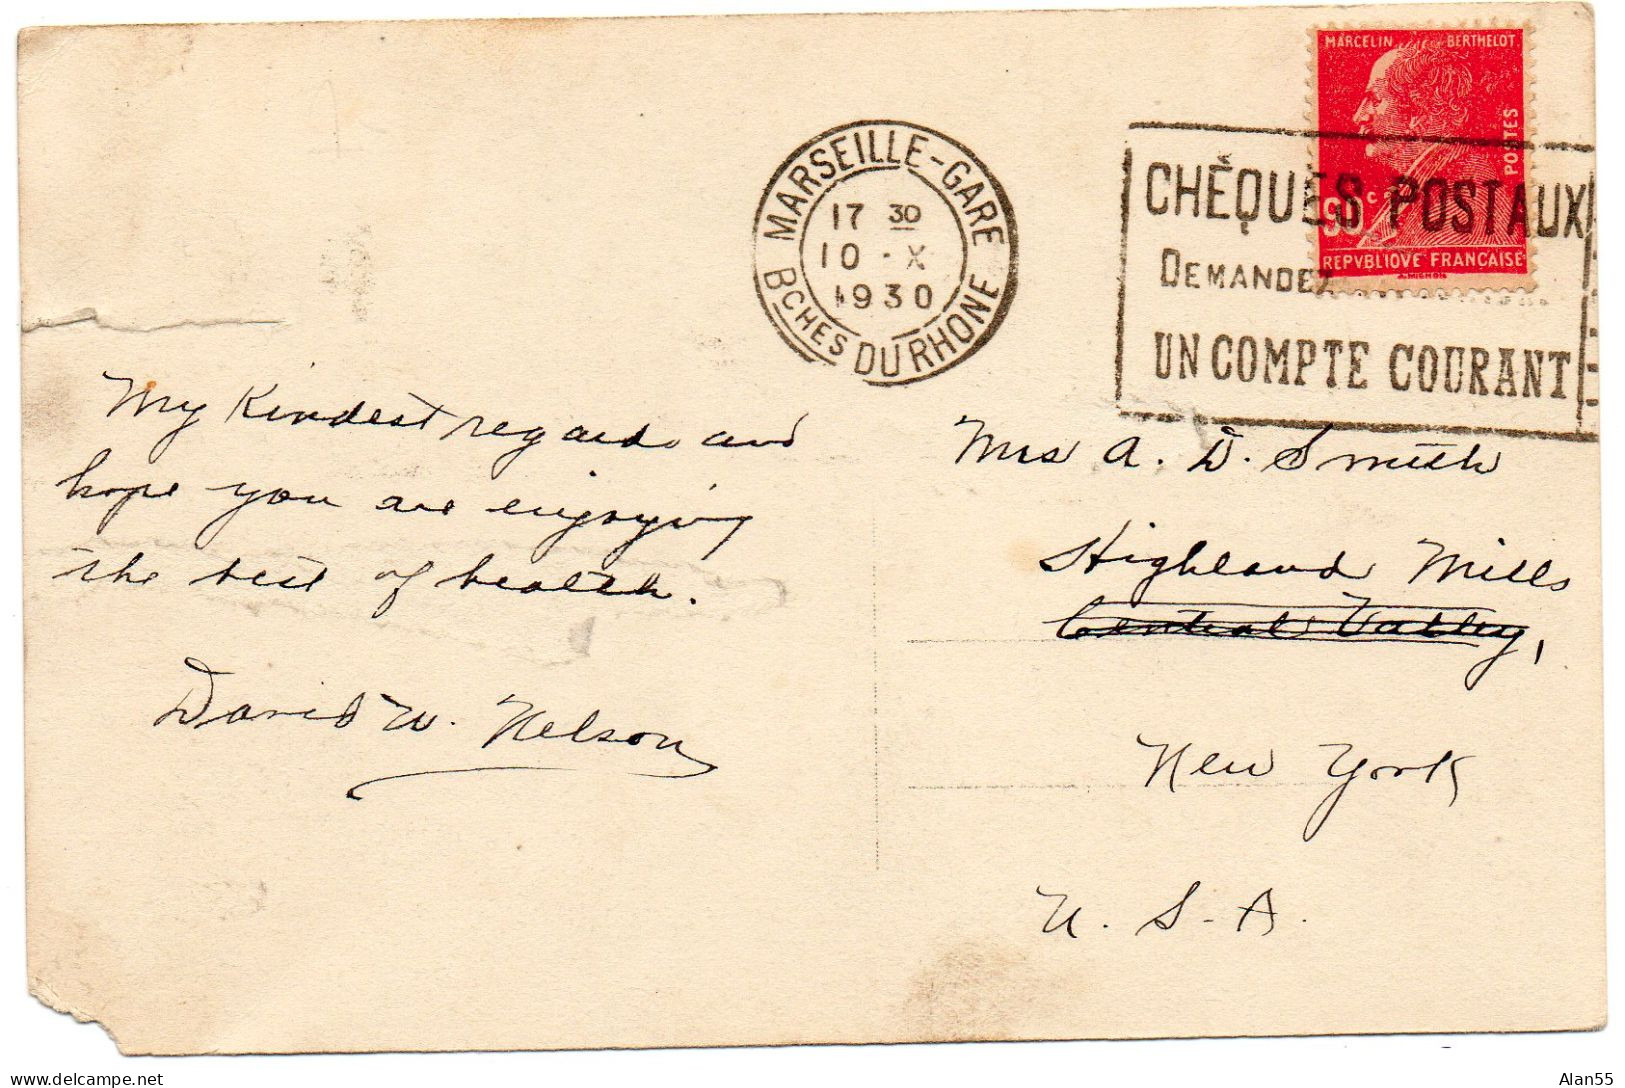 MARCELIN BERTHELOT
POSTES
90c
REPVBLIQVE FRANCAISE
A. MIGNON
MARSEILLE-GARE
17 30
10 - X
1930
BCHES DU RHONE
CHÈQUES POSTAUX
DEMANDEZ
UN COMPTE COURANT
My Kindest regards and
hope you are enjoying
the best of health.
David W. Nelson
Mrs A. D. Smith
Highland Mills
Central Valley,
New York
U. S. A.
Alan55